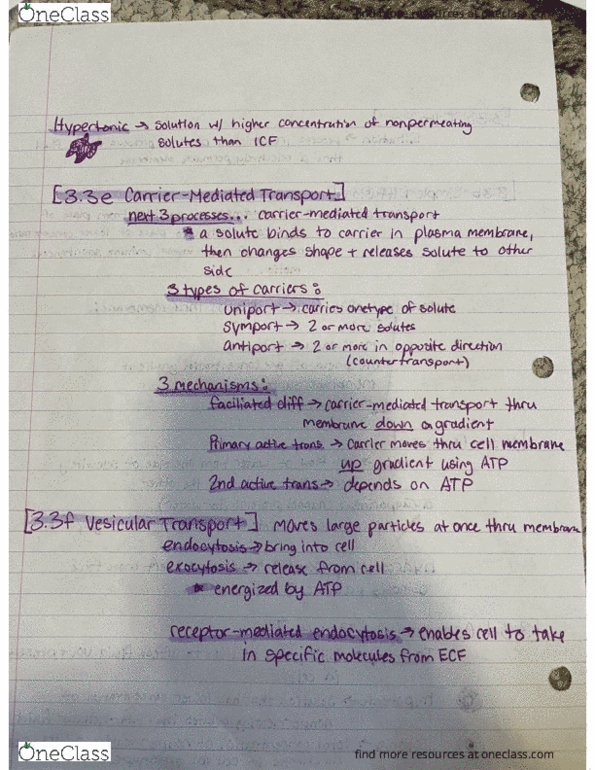 OneClass
find more resources at oneclass.com
Hypertonic → solution w/ higher concentration of nonpermeating
solutes than ICF
[3.3e Carrier-Mediated Transport]
next 3 processes... carrier-mediated transport
a solute binds to carrier in plasma membrane,
then changes shape + releases solute to other
side
3 types of carriers:
uniport → carries one type of solute
symport → 2 or more solutes
antiport → 2 or more in opposite direction
(countertransport)
3 mechanisms:
faciliated diff → carrier-mediated transport thru
membrane down a gradient
Primary active trans → carrier moves thru cell membrane
up gradient using ATP
2nd active trans → depends on ATP
[3.3f Vesicular Transport] moves large particles at once thru membrane
endocytosis → bring into cell
exocytosis → release from cell
energized by ATP
receptor-mediated endocytosis → enables cell to take
in specific molecules from ECF
OneClass
find more resources at oneclass.com